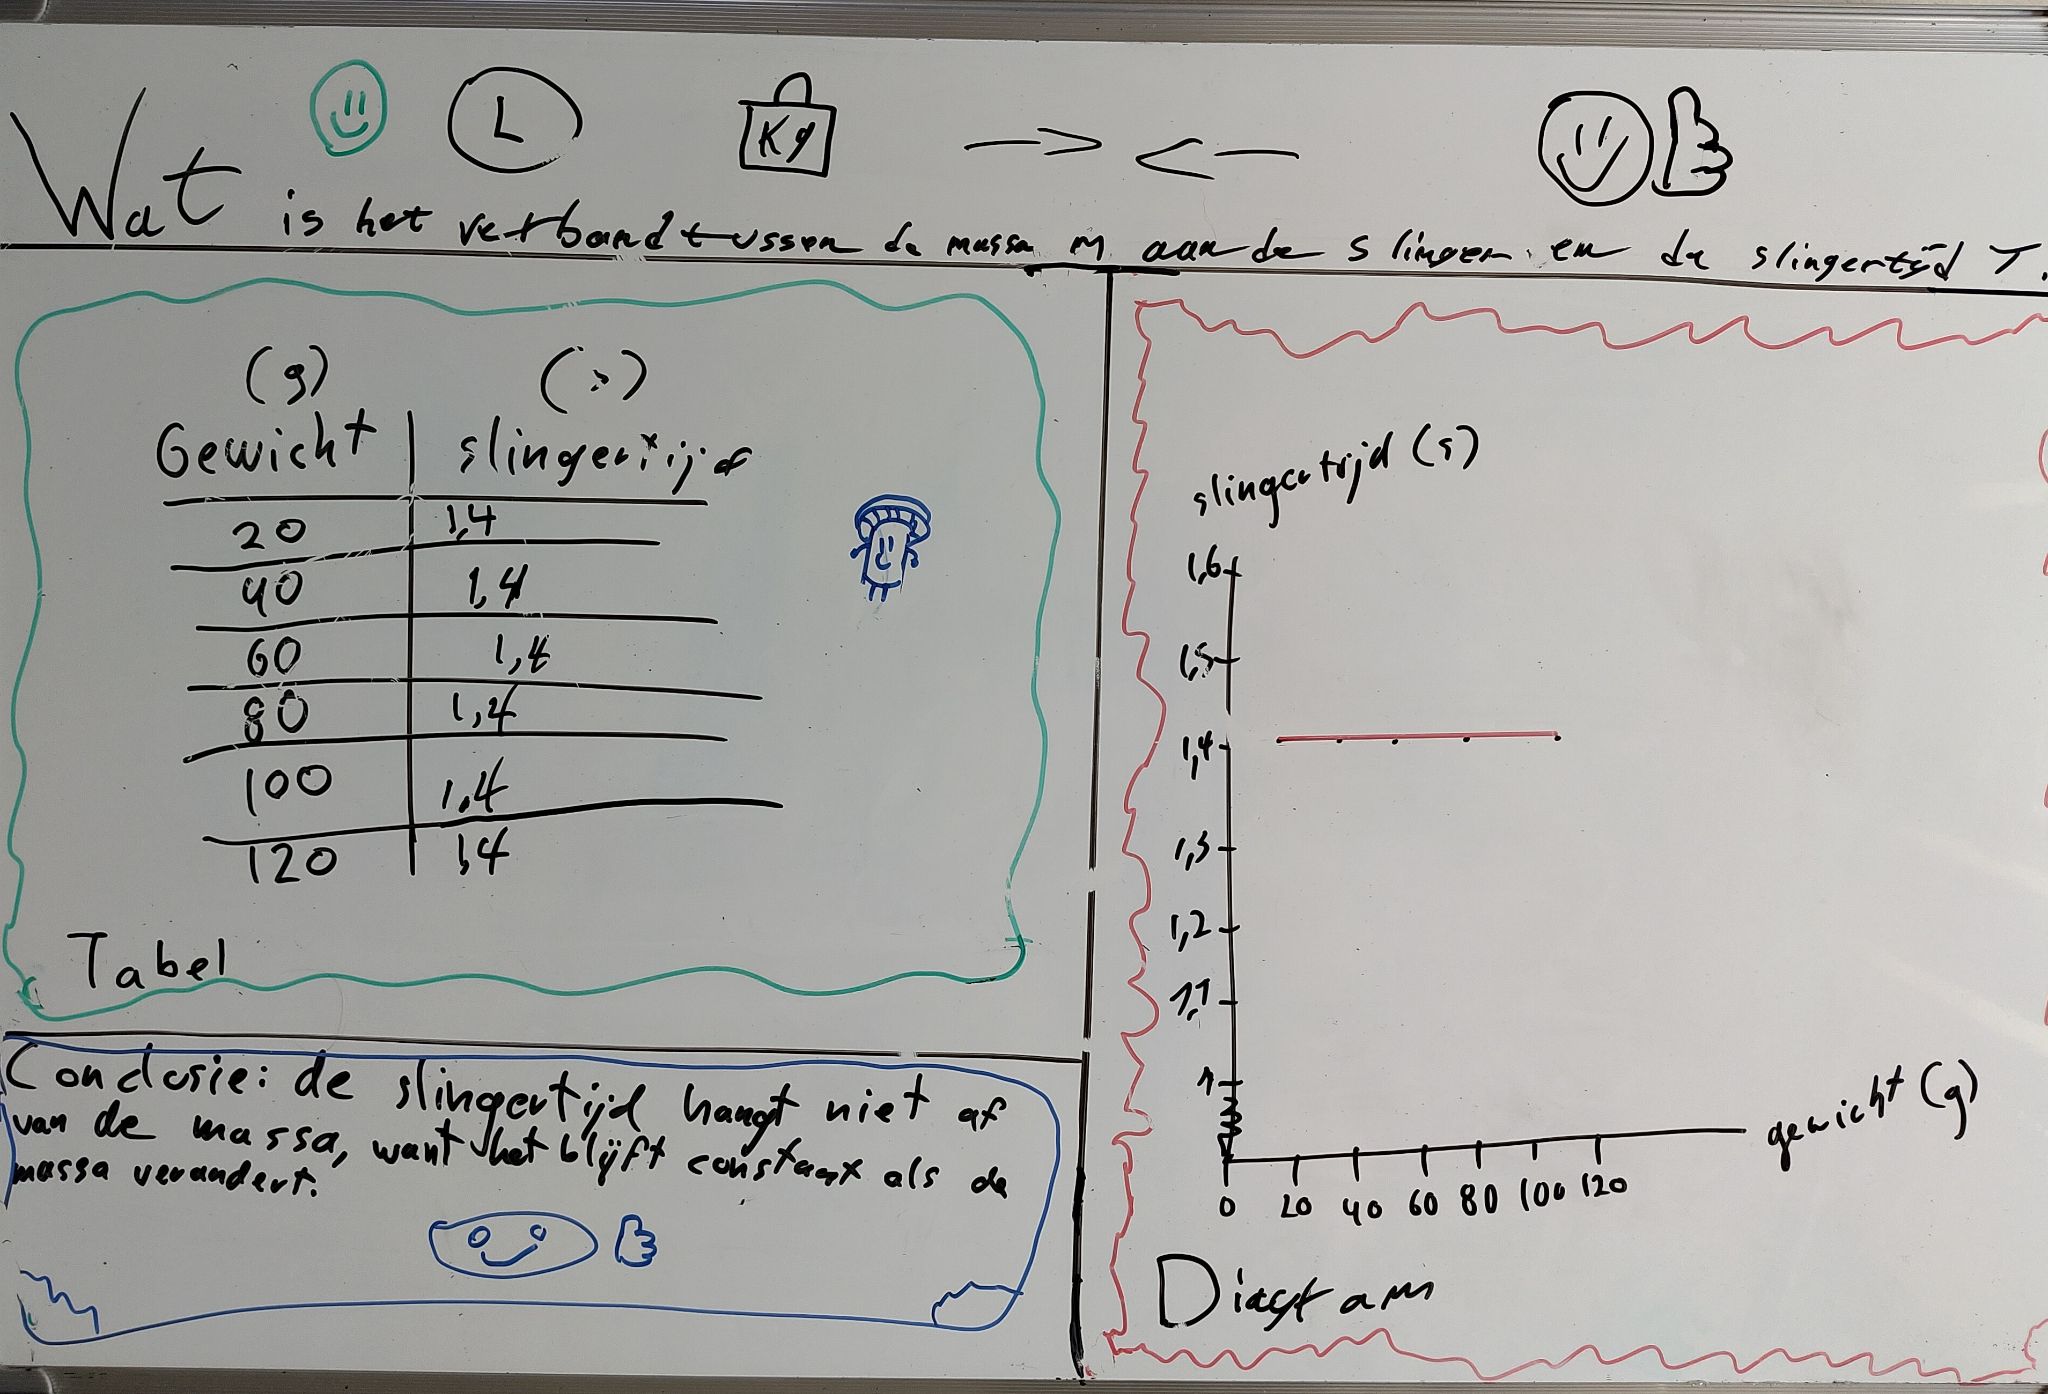 L
Kg
Wat is het verband tussen de massa m aan de slinger en de slingertijd T.
(g) (s)
Gewicht slingertijd
20 1,4
40 1,4
60 1,4
80 1,4
100 1,4
120 1,4
Tabel
Conclusie: de slingertijd hangt niet af
van de massa, want het blijft constant als de
massa verandert.
slingertijd (s)
1,6
1,5
1,4
1,3
1,2
1,1
1
gewicht (g)
0 20 40 60 80 100 120
Diagram